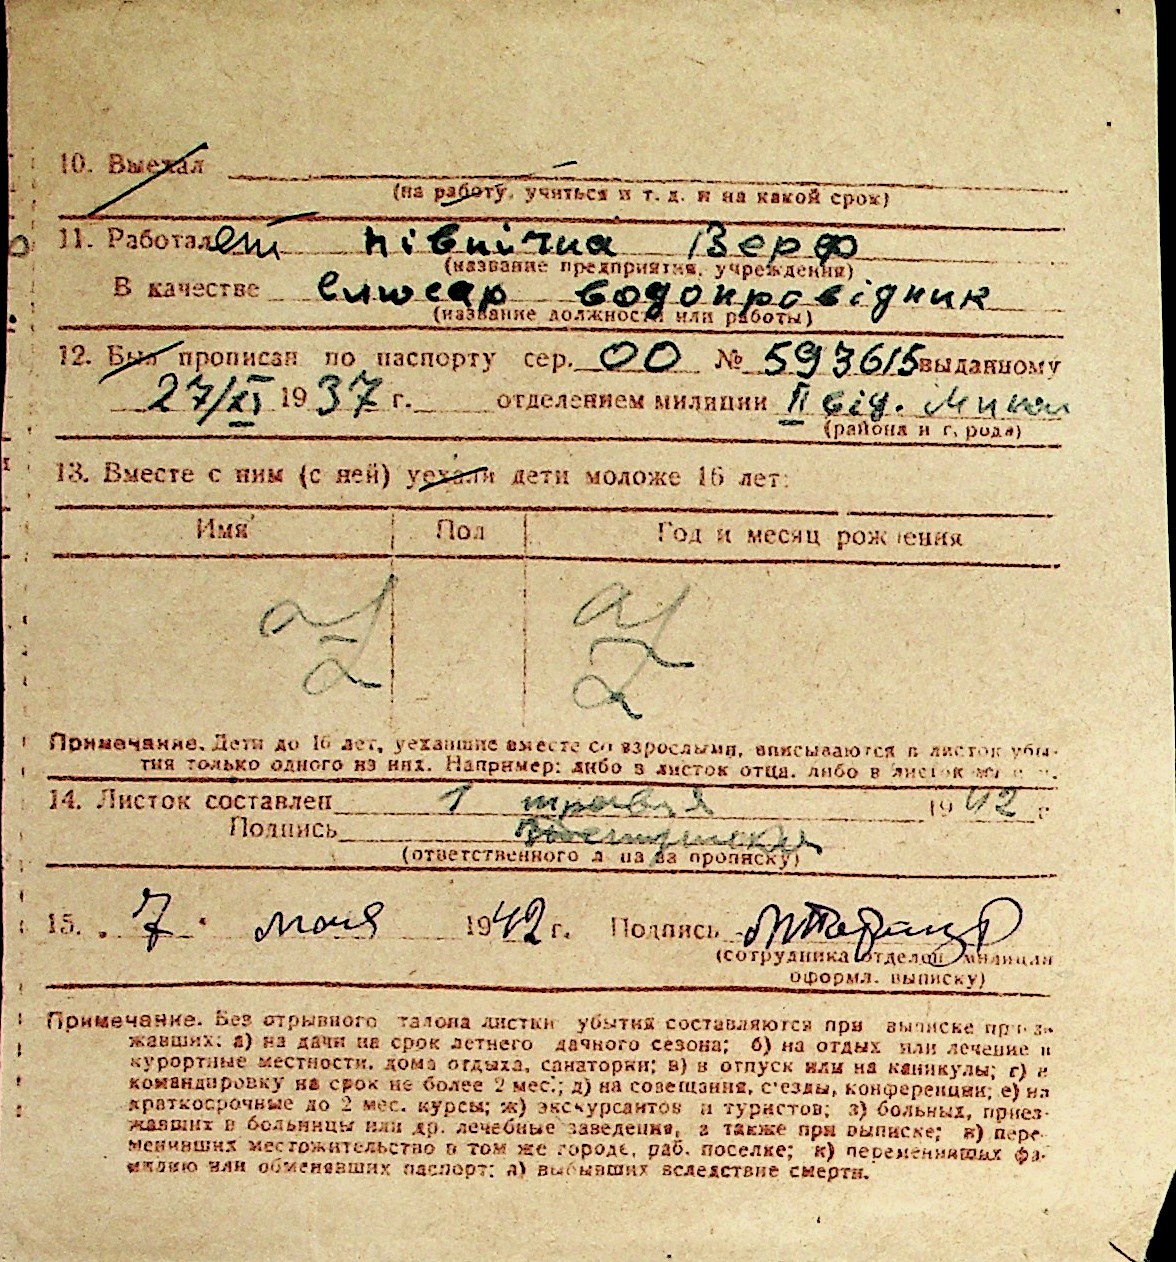 10. Выехал
(на работу, учиться и т. д. и на какой срок)
11. Работает Північна Верф
(название предприятия, учреждения)
В качестве слюсар водопровідник
(название должности или работы)
12. Был прописан по паспорту сер. ОО № 593615 выданному
27/XI 1937 г. отделением милиции II від. Микол
(района и города)
13. Вместе с ним (с ней) уехали дети моложе 16 лет:
Имя Пол Год и месяц рождения
Примечание. Дети до 16 лет, уехавшие вместе со взрослыми, вписываются в листок убы-
тия только одного из них. Например: либо в листок отца, либо в листок
14. Листок составлен 1 травня 1942 г
Подпись
(ответственного лица за прописку)
15. 7 мая 1942 г. Подпись
(сотрудника отделен милиции
оформл. выписку)
Примечание. Без отрывного талона листки убытия составляются при выписке приез-
жавших: а) на дачи на срок летнего дачного сезона; б) на отдых или лечение в
курортные местности, дома отдыха, санатории; в) в отпуск или на каникулы; г) в
командировку на срок не более 2 мес.; д) на совещания, с'езды, конференции; е) на
краткосрочные до 2 мес. курсы; ж) экскурсантов и туристов; з) больных, приез-
жавших в больницы или др. лечебные заведения, а также при выписке; и) пере-
менивших местожительство в том же городе, раб. поселке; к) переменивших фа-
милию или обменявших паспорт; л) выбывших вследствие смерти.